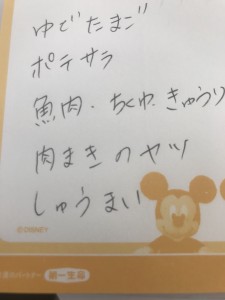 ゆでたまご
ポテサラ
魚肉・ちくわ・きゅうり
肉まきのヤツ
しゅうまい
©DISNEY
第一生命